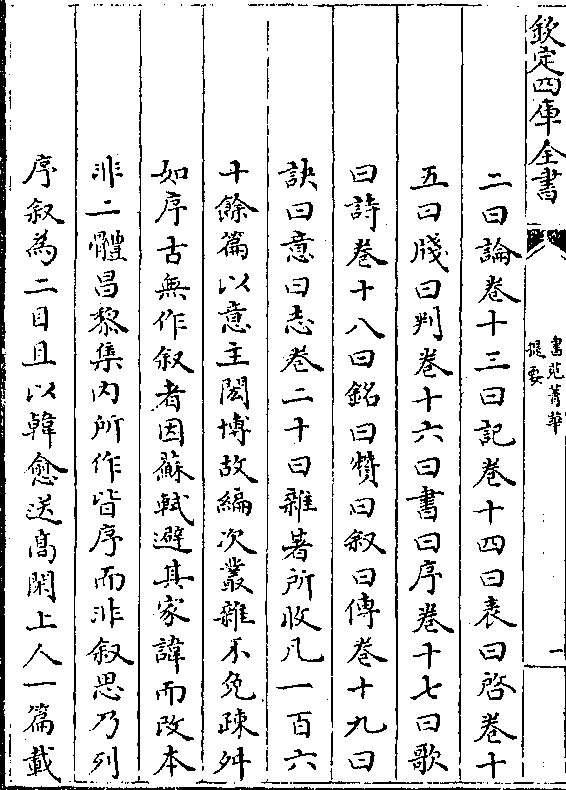 欽定四庫全書
書苑菁華
提要
一
二曰論卷十三曰記卷十四曰表曰啓卷十
五曰牋曰判卷十六曰書曰序卷十七曰歌
曰詩卷十八曰銘曰贊曰叙曰傳卷十九曰
訣曰意曰志卷二十曰雜著所收凡一百六
十餘篇以意主閎博故編次叢雜不免疎舛
如序古無作叙者因蘇軾避其家諱而改本
非二體昌黎集内所作皆序而非叙思乃列
序叙為二目且以韓愈送高閑上人一篇載